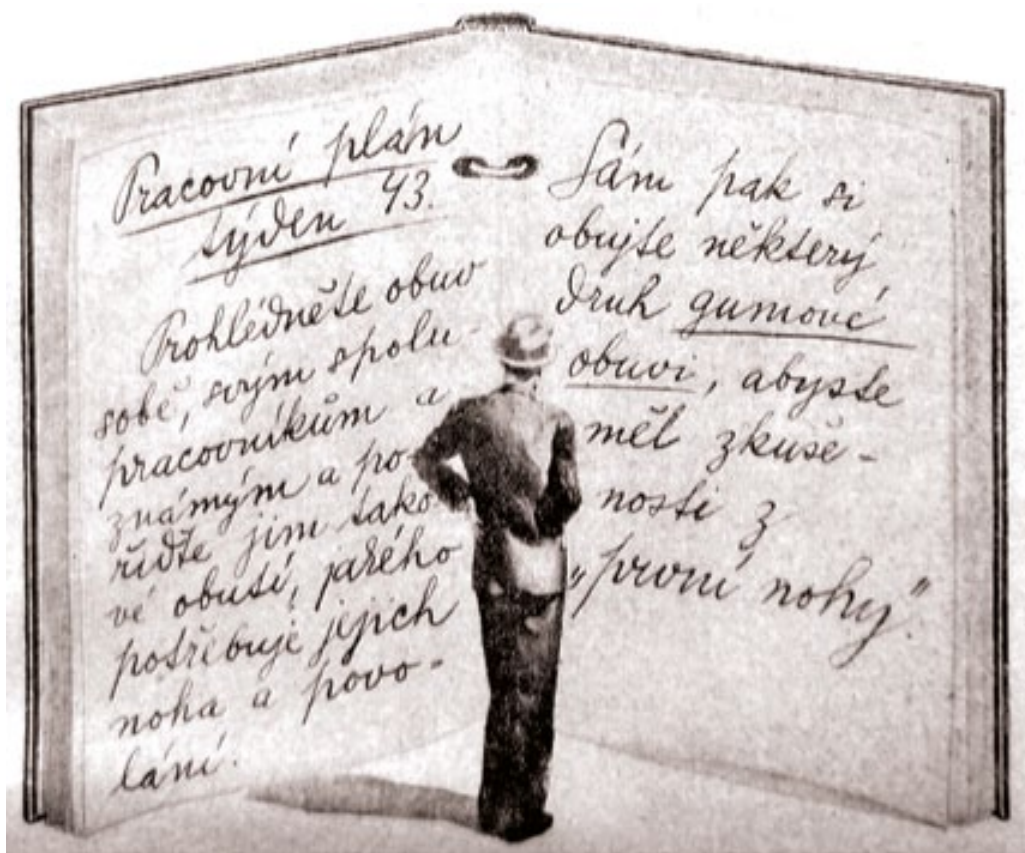 Pracovní plán
týden 43.
Prohlédněte obuv
sobě, svým spolu-
pracovníkům a
známým a po-
řiďte jim tako-
vé obutí, jakého
potřebuje jejich
noha a povo-
lání.
Sám pak si
obujte některý
druh gumové
obuvi, abyste
měl zkuše-
nosti z
„první nohy".